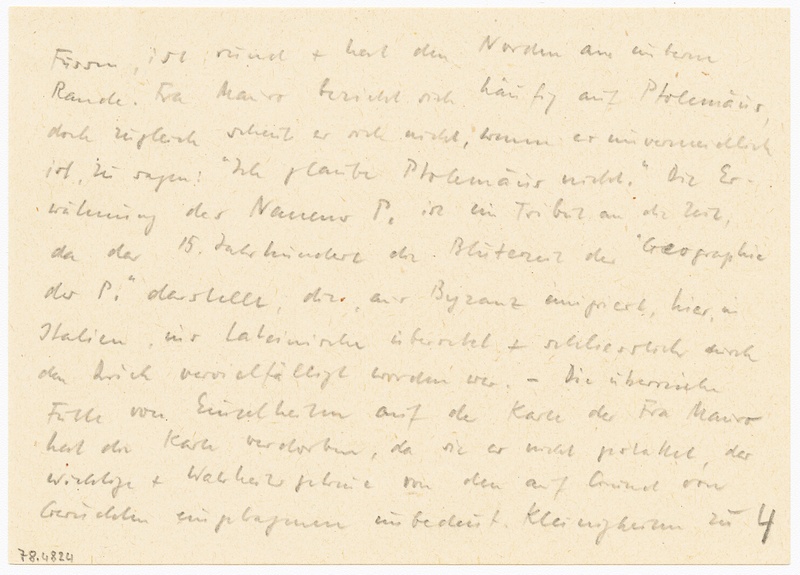 Füssen, ist rund + hat den Norden am unteren
Rande. Fra Mauro bezieht sich häufig auf Ptolemäus,
doch zugleich scheut er sich nicht, wenn er unvermeidlich
ist, zu sagen: "Ich glaube Ptolemäus nicht." Die Er-
wähnung des Namens P. ist ein Tribut an die Zeit,
da das 15. Jahrhundert die Blütezeit der "Geographie
des P." darstellt, die, aus Byzanz emigriert, hier, in
Italien, ins Lateinische übersetzt + schliesslich durch
den Druck vervielfältigt worden war. – Die überreiche
Fülle von Einzelheiten auf der Karte des Fra Mauro
hat die Karte verdorben, da sie es nicht gestattet, das
wichtige + Wahrheitsgetreue von den auf Grund von
Gerüchten eingetragenen unbedeut. Kleinigkeiten zu 4
78.4824